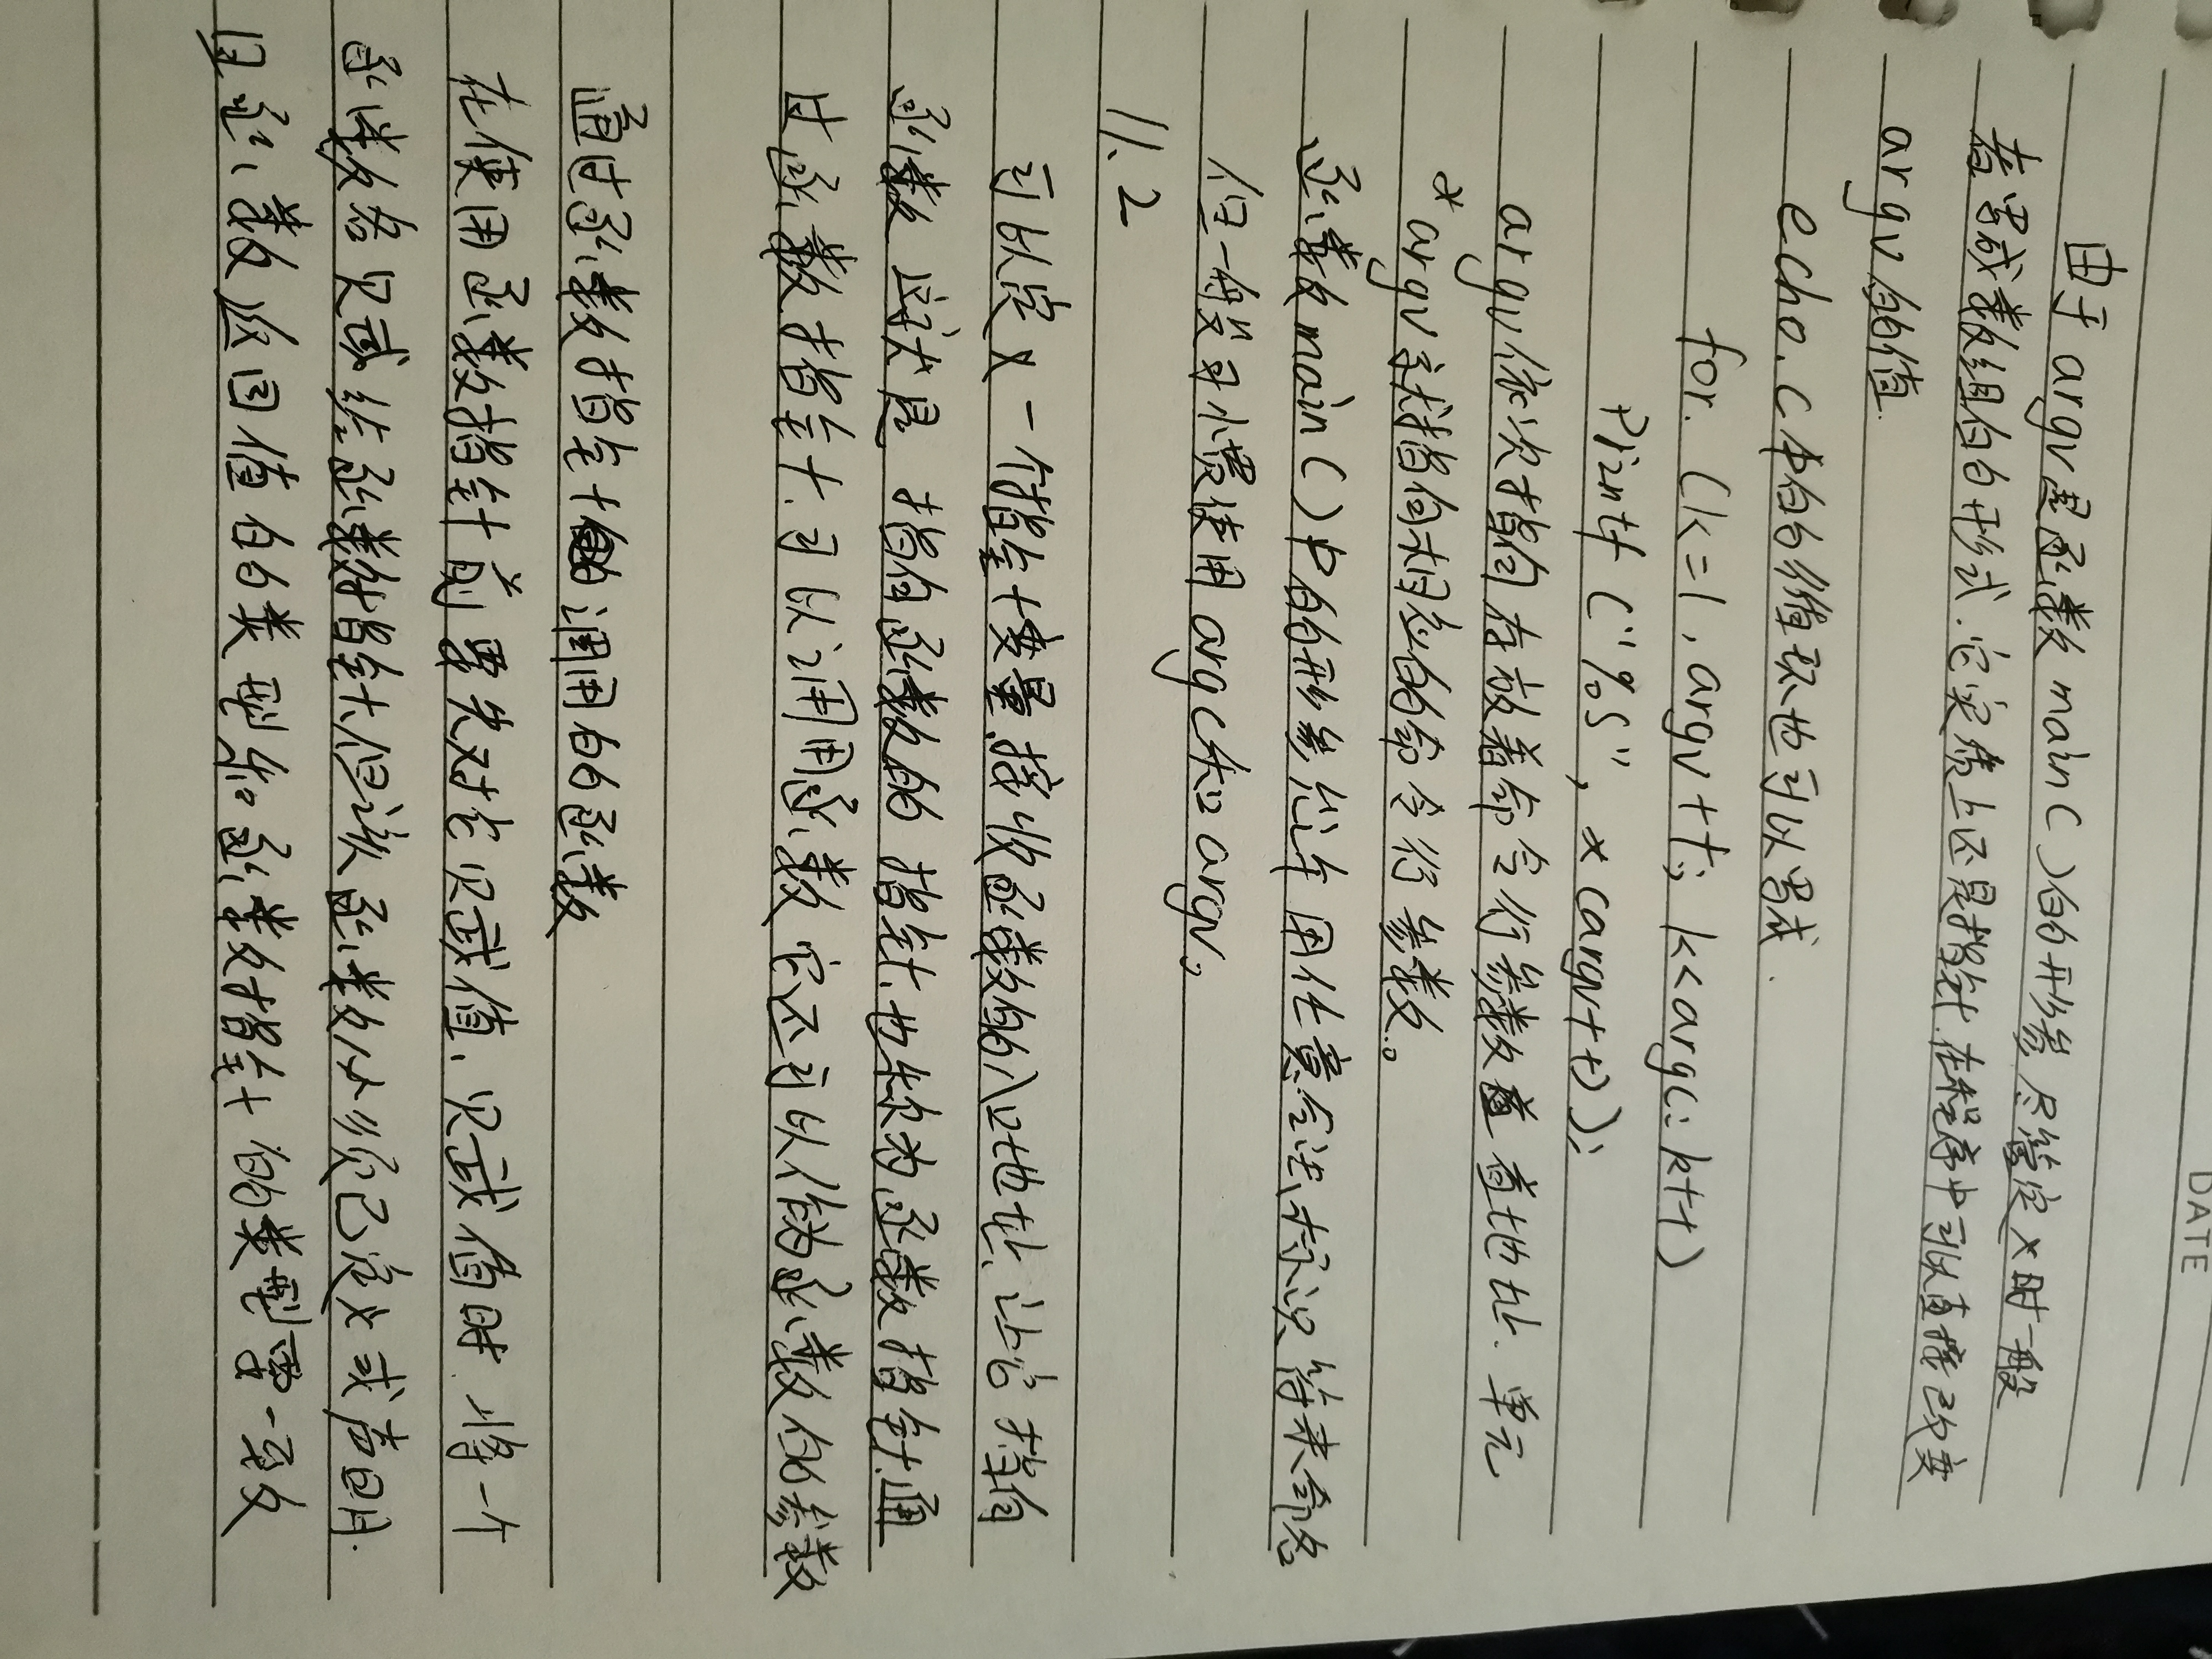 DATE
由于argv是函数main()的形参 尽管定义时一般
都写成数组的形式.它实质上还是指针.在程序中可以直接改变
argv的值.
echo.c中的循环也可以写成.
for. (k=1, argv++; k<argc; k++)
printf ("%s", *(argv++));
argv依次指向存放着命令行参数首地址.单元
*argv就指向相应的命令行参数。
函数main()中的形参允许用任意合法标识符来命名
但一般习惯使用argc和argv。
11.2
可以定义一个指针变量.接收函数的入口地址.让它指向
函数 这就是 指向函数的 指针.也称为函数指针.通
过函数指针.可以调用函数 它还可以作为函数的参数
通过函数指针调用的函数
在使用函数指针前要先对它贝或值.贝或值时.将一个
函数名贝或给函数指针.但该函数必须已定义或声明.
且函数返回值的类型和函数指针的类型要一致